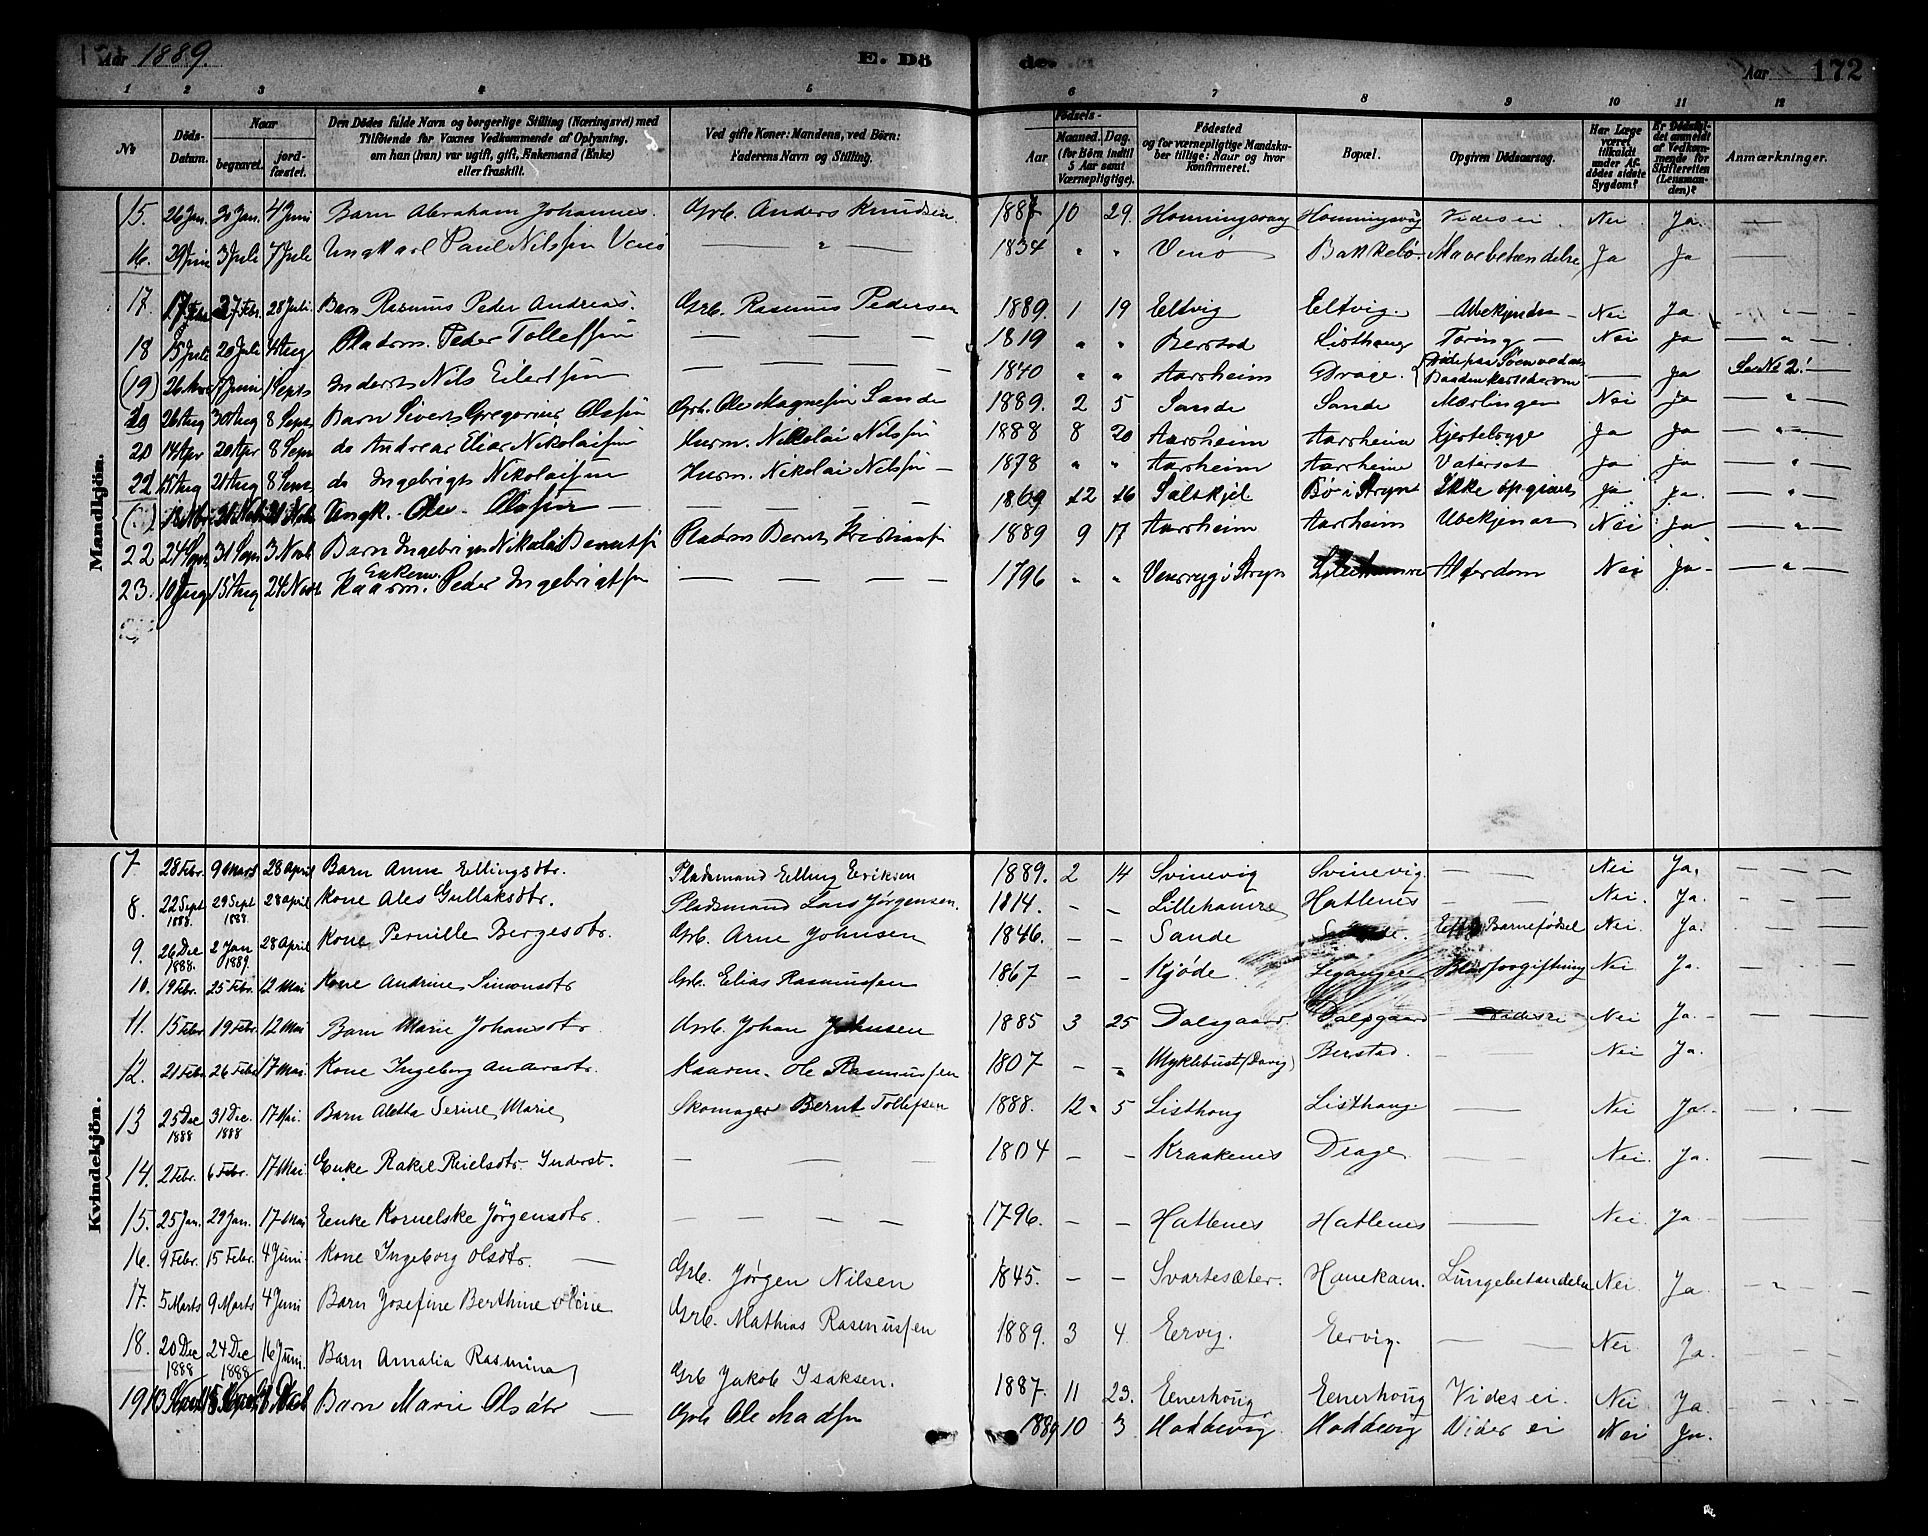 Aar 1889. E. Dö de. Aar 172
1 2 3 4 5 6 7 8 9 10 11 12
No
Döds-Datum.
Naar
begravet.
jordfæstet.
Den Dödes fulde Navn og borgerlige Stilling (Næringsvei) med
Tilföiende for Voxnes Vedkommende af Oplysning,
om han (hun) var ugift, gift, Enkemand (Enke)
eller fraskilt.
Ved gifte Koner: Mandens, ved Börn:
Faderens Navn og Stilling.
Födsels-
Aar
Maaned. Dag.
(for Börn indtil
5 Aar samt
Værnepligtige).
Födested
og for værnepligtige Mandskaber tillige: Naar og hvor
konfirmeret.
Bopæl.
Opgiven Dödsaarsag.
Har Læge
været
tilkaldt
under Afdödes sidste
Sygdom?
Er Dödsfaldet anmeldt
af Vedkommende for
Skifteretten
(Lensmanden)?
Anmærkninger.
Mandkjön.
15. 26 Jan. 30 Jan. 4 Juni Barn Abraham Johannes. Grb. Anders Knudsen 1887 10 29. Honningsvaag Honningsvåg Vides ei Nei Ja. —
16. 29 Juni 3 Juli 7 Juli Ungkarl Paul Nilssen — " — 1834 " " Venø Bakkebø Mavebetændelse Ja Ja —
17. 27 Febr. 28 Juli Barn Rasmus Peder Andreas. Grb. Rasmus Pedersen 1889. 1 19 Eltvig Eltvig. Ubekjendt Nei Ja. — " —
18 15 Juli 20 Juli 4 Aug Pladsm. Peder Tollefsen — — — 1819 " " Berstad Listhaug Tæring — Nei Ja — " —
(19) Inderst Nils Eilertsen — — — 1840 " " Aarsheim Drage. — Ja Se No 2! —
26 Aug 30 Aug 8 Sept Barn Sivert Gregorius Olsen Grb. Ole Magnesen Sande 1889. 2 5 Sande Sande Mæslinger Nei Ja — " —
20 14 Apr 20 Apr 8 Sept do Andreas Elias Nikolaisen Husm. Nikolai Nilsen 1888 8 20 Aarsheim Aarsheim Ja Ja — " —
22 15 Aug 21 Aug 8 Sept. do Ingebrigt Nikolaisen Husm. Nikolai Nilsen — 1878 " " Aarsheim Aarsheim Vatersot Ja Ja — " —
Ungk. Ole Olssen — — — — 1869 12 16 Silskjel Bø i Stryn Ikke opgivet Ja Ja. — " —
22 24 Sept 31 Sept 3 Novb Barn Ingebrigt Nikolai Berntsen Pladsm Bernt Kristiansen 1889 9 17 Aarsheim Aarsheim Ubekjendt Nei Ja — " —
23. 10 Aug 15 Aug 24 Novb Enkem. Kaarm. Peder Ingebrigtsen — — — 1796 " " Lillehamre Alderdom Nei Ja. — — —
Kvindekjön.
7 28 Febr. 9 Marts 28 April Barn Anne Ellingsdtr. Pladsmand Elling Eriksen 1889. 2 14 Svinevig Svinevig. — — Nei Ja. — — —
8. 22 Sept 1888. 29 Sept 1888. 28 April Kone Ales Gullaksdtr. Pladsmand Lars Jørgensen. 1814. — — Lillehamre Hatlenes — — Nei. Ja. — — —
9. 26 Dec 1888. 2 Jan 1889. 28 April Kone Pernille Bergesdtr. Grb. Arne Johnsen 1846. — — Sande Efter Barnefødsel Nei. Ja. — — —
10. 19 Febr. 25 Febr. 12 Mai Kone Andrine Simonsdtr Grb. Elias Rasmussen 1867 — — Kjøde. Leganger Blodforgiftning Nei Ja. — — —
11. 15 Febr 19 Febr. 12 Mai Barn Marie Johansdtr. Grb. Johan Johnsen 1885 3 25 Dalsgaard. Dalsgaard — Vides ei Nei Ja — — —
12. 21 Febr. 26 Febr 17 Mai. Kone Ingeborg Andersdtr. Kaarm. Ole Rasmussen 1807 — — Myklebust (Davig) Berstad. — — Nei Ja. — — —
13 25 Dec 1888 31 Dec. 1888 17 Mai. Barn Aletta Serine Marie Skomager Bernt Tollefsen 1888. 12 5 Listhoug Listhaug. — — Nei Ja. — — —
14. 2 Febr. 6 Febr. 17 Mai Enke Rakel Reielsdtr. Inderst. — — — 1804 — — Kraakenes Drage. — Nei. Ja. — — —
15. 25 Jan. 29 Jan. 17 Mai Enke Kornelske Jørgensdtr. — — — — 1796. — — Hatlenes Hatlenes — Nei. Ja. — — —
16. 9 Febr. 15 Febr. 4 Juni Kone Ingeborg Olsdtr. — Grb. Jørgen Nilsen 1845. — — Svartesæter. Hanekam. Lungebetændelse Nei. Ja. — " — —
17. 5 Marts 9 Marts 4 Juni Barn Josefine Berthine Oline Grb. Mathias Rasmussen 1889. 3 4. Eervig. Eervig. — — Nei. Ja. — — —
18. 20 Dec 1888 24 Dec 1888 16 Juni. Barn Amalia Rasmina Grb Jakob Isaksen. 1887. 11 23. Eenerhoug Eenerhoug Vides ei. Nei Ja. — — —
19 Barn Marie Olsdtr — Grb Ole Madsen 1889 10 3 Hoddevig. Hoddevig Vides ei Nei Ja. — — —